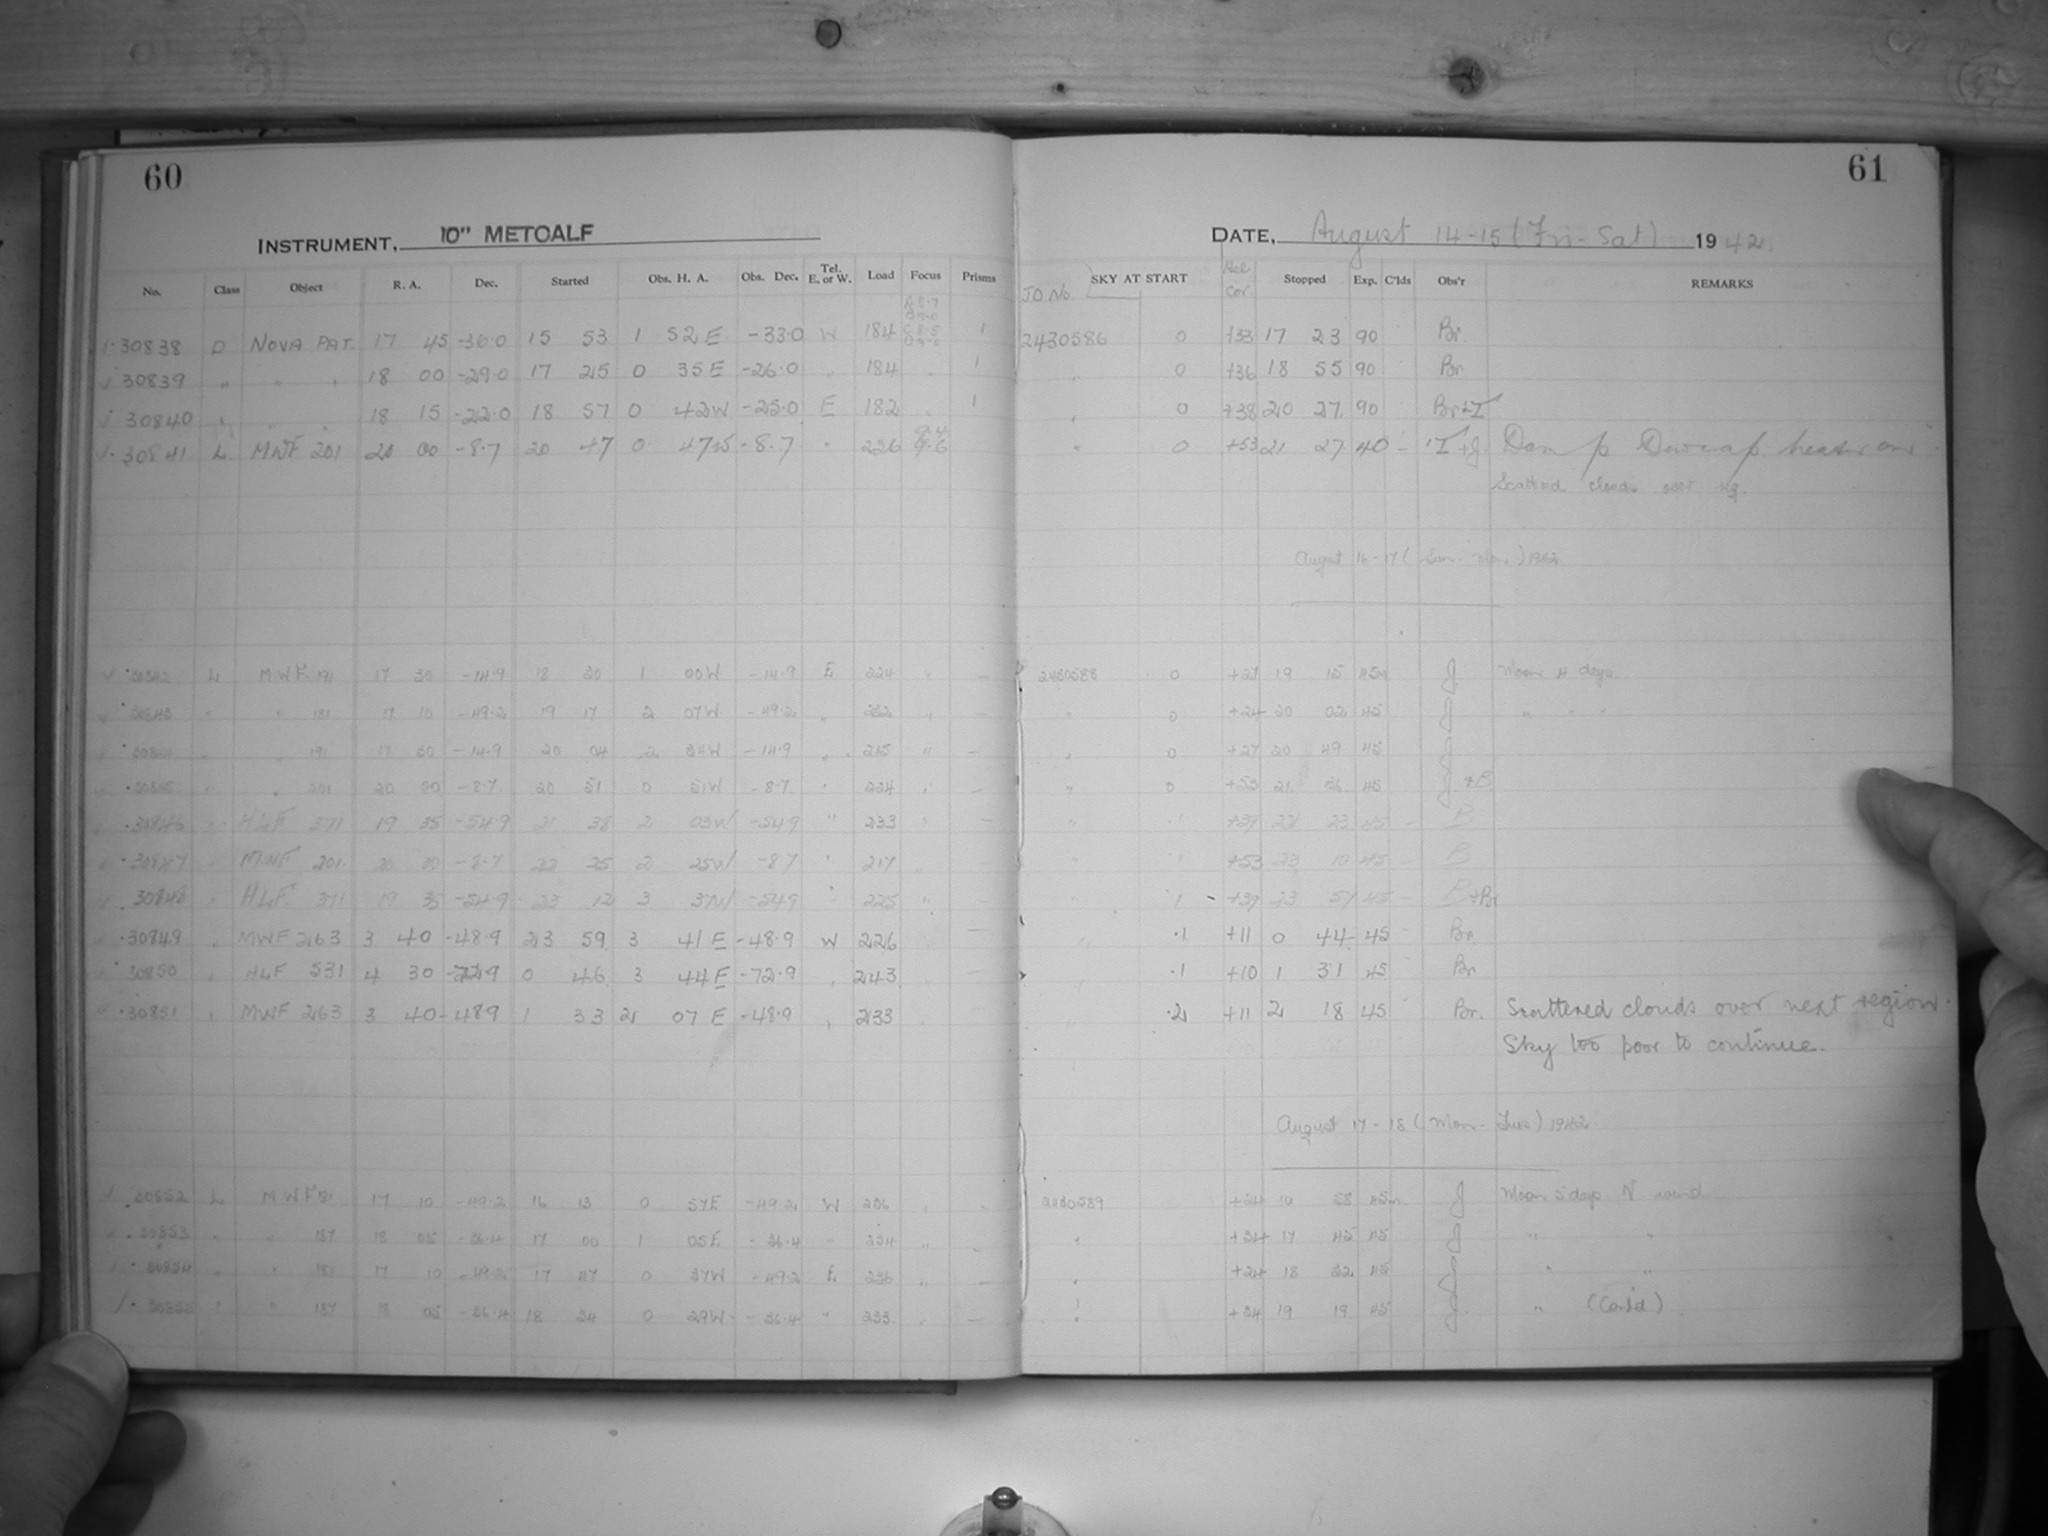 60
61
INSTRUMENT, 10" METCALF
DATE, August 14-15 (Fri - Sat) 1942
No. Class Object R. A. Dec. Started Obs. H. A. Obs. Dec. Tel. E. or W. Load Focus Prisms JD No. SKY AT START Stopped Exp. C'lds Obs'r REMARKS
30838 D NOVA PAT. 17 45 -36.0 15 53 1 52 E -33.0 W 184 1 2430586 0 +33 17 23 90 Br.
30839 " " " 18 00 -29.0 17 25 0 35 E -26.0 " 184 1 " 0 +36 18 55 90 Br
30840 18 15 -22.0 18 57 0 42W -25.0 E 182 1 " 0 +38 20 27 90 Br+T
30841 L MWF 201 20 00 -8.7 20 47 0 47W -8.7 " 226 9.6 " 0 +53 21 27 40 - T+J. Damp Dewcap heater on
Scattered clouds over reg.
August 16-17 (Sun. Mon.) 1942
30842 L MWF 191 17 30 -14.9 18 30 1 00W -14.9 E 224 " - 2430588 0 +27 19 15 45m J Moon 4 days.
30843 " " 181 17 10 -49.2 19 17 2 07W -49.2 " 232 " - " 0 +24 20 02 45 J " " "
30844 " " 191 17 30 -14.9 20 04 2 34W -14.9 " 215 " - " 0 +27 20 49 45 J
30845 " " 201 20 00 -8.7 20 51 0 51W -8.7 " 224 " - " 0 +53 21 36 45 J +B
30846 " HLF 371 19 35 -54.9 21 38 2 03W -54.9 " 233 " - " .1 +39 22 23 45 - B
30847 " MWF 201 20 00 -8.7 22 25 2 25W -8.7 " 217 " " 1 +53 23 10 45 - B
30848 " HLF 371 19 35 -54.9 23 12 3 37W -54.9 " 225 " - " 1 +39 23 57 45 - B+Br
30849 " MWF 263 3 40 -48.9 23 59 3 41 E -48.9 W 226 " - " .1 +11 0 44 45 - Br.
30850 " HLF 531 4 30 -72.9 0 46 3 44E -72.9 " 243 " - " .1 +10 1 31 45 Br
30851 " MWF 263 3 40 -48.9 1 33 2 07 E -48.9 " 233 " .2 +11 2 18 45 Br. Scattered clouds over next region.
Sky too poor to continue.
August 17-18 (Mon - Tues) 1942.
30852 L MWF 181 17 10 -49.2 16 13 0 57E -49.2 W 236 2430589 +24 58 45m J Moon 5 days N wind
30853 " " 187 18 05 -36.4 17 00 1 05E -36.4 " 234 " - " +34 17 45 45 J " "
30854 " " 181 17 10 -49.2 17 47 0 37W -49.2 E 236 " - " +24 18 32 45 J " "
30855 " " 187 18 05 -36.4 18 34 0 29W -36.4 " 233 " - " +34 19 19 45 J " (Cont'd)